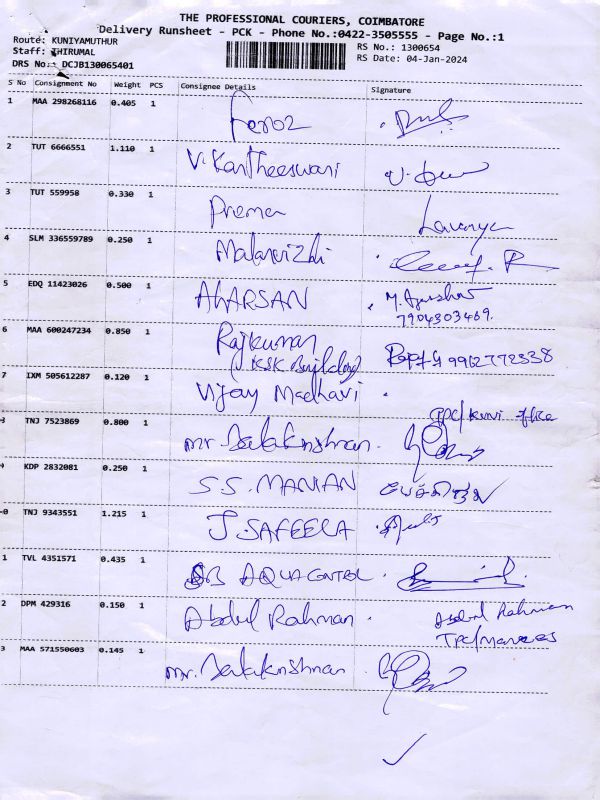 THE PROFESSIONAL COURIERS, COIMBATORE
Delivery Runsheet - PCK - Phone No.:0422-3505555 - Page No.:1
Route: KUNIYAMUTHUR
RS No.: 1300654
Staff: THIRUMAL
RS Date: 04-Jan-2024
DRS No.: DCJB130065401
S No Consignment No Weight PCS Consignee Details Signature
1 MAA 298268116 0.405 1 Feroz
2 TUT 6666551 1.110 1 V. Kantheeswari
3 TUT 559958 0.330 1 Prema Lavanya
4 SLM 336559789 0.250 1 Malarvizhi
5 EDQ 11423026 0.500 1 AhARSAN M.
7904303469.
6 MAA 600247234 0.850 1 Rajkumar 9962772338
KSK Building
7 IXM 505612287 0.120 1 Vijay Madhavi
TPC/ office
8 TNJ 7523869 0.800 1 mr. Balakrishnan
9 KDP 2832081 0.250 1 S.S. MANIAN
0 TNJ 9343551 1.215 1 J. SAFEELA
1 TVL 4351571 0.435 1 AQUA
2 DPM 429316 0.150 1 Abdul Rahman Abdul Rahman
TPC/
3 MAA 571550603 0.145 1 mr. Balakrishnan